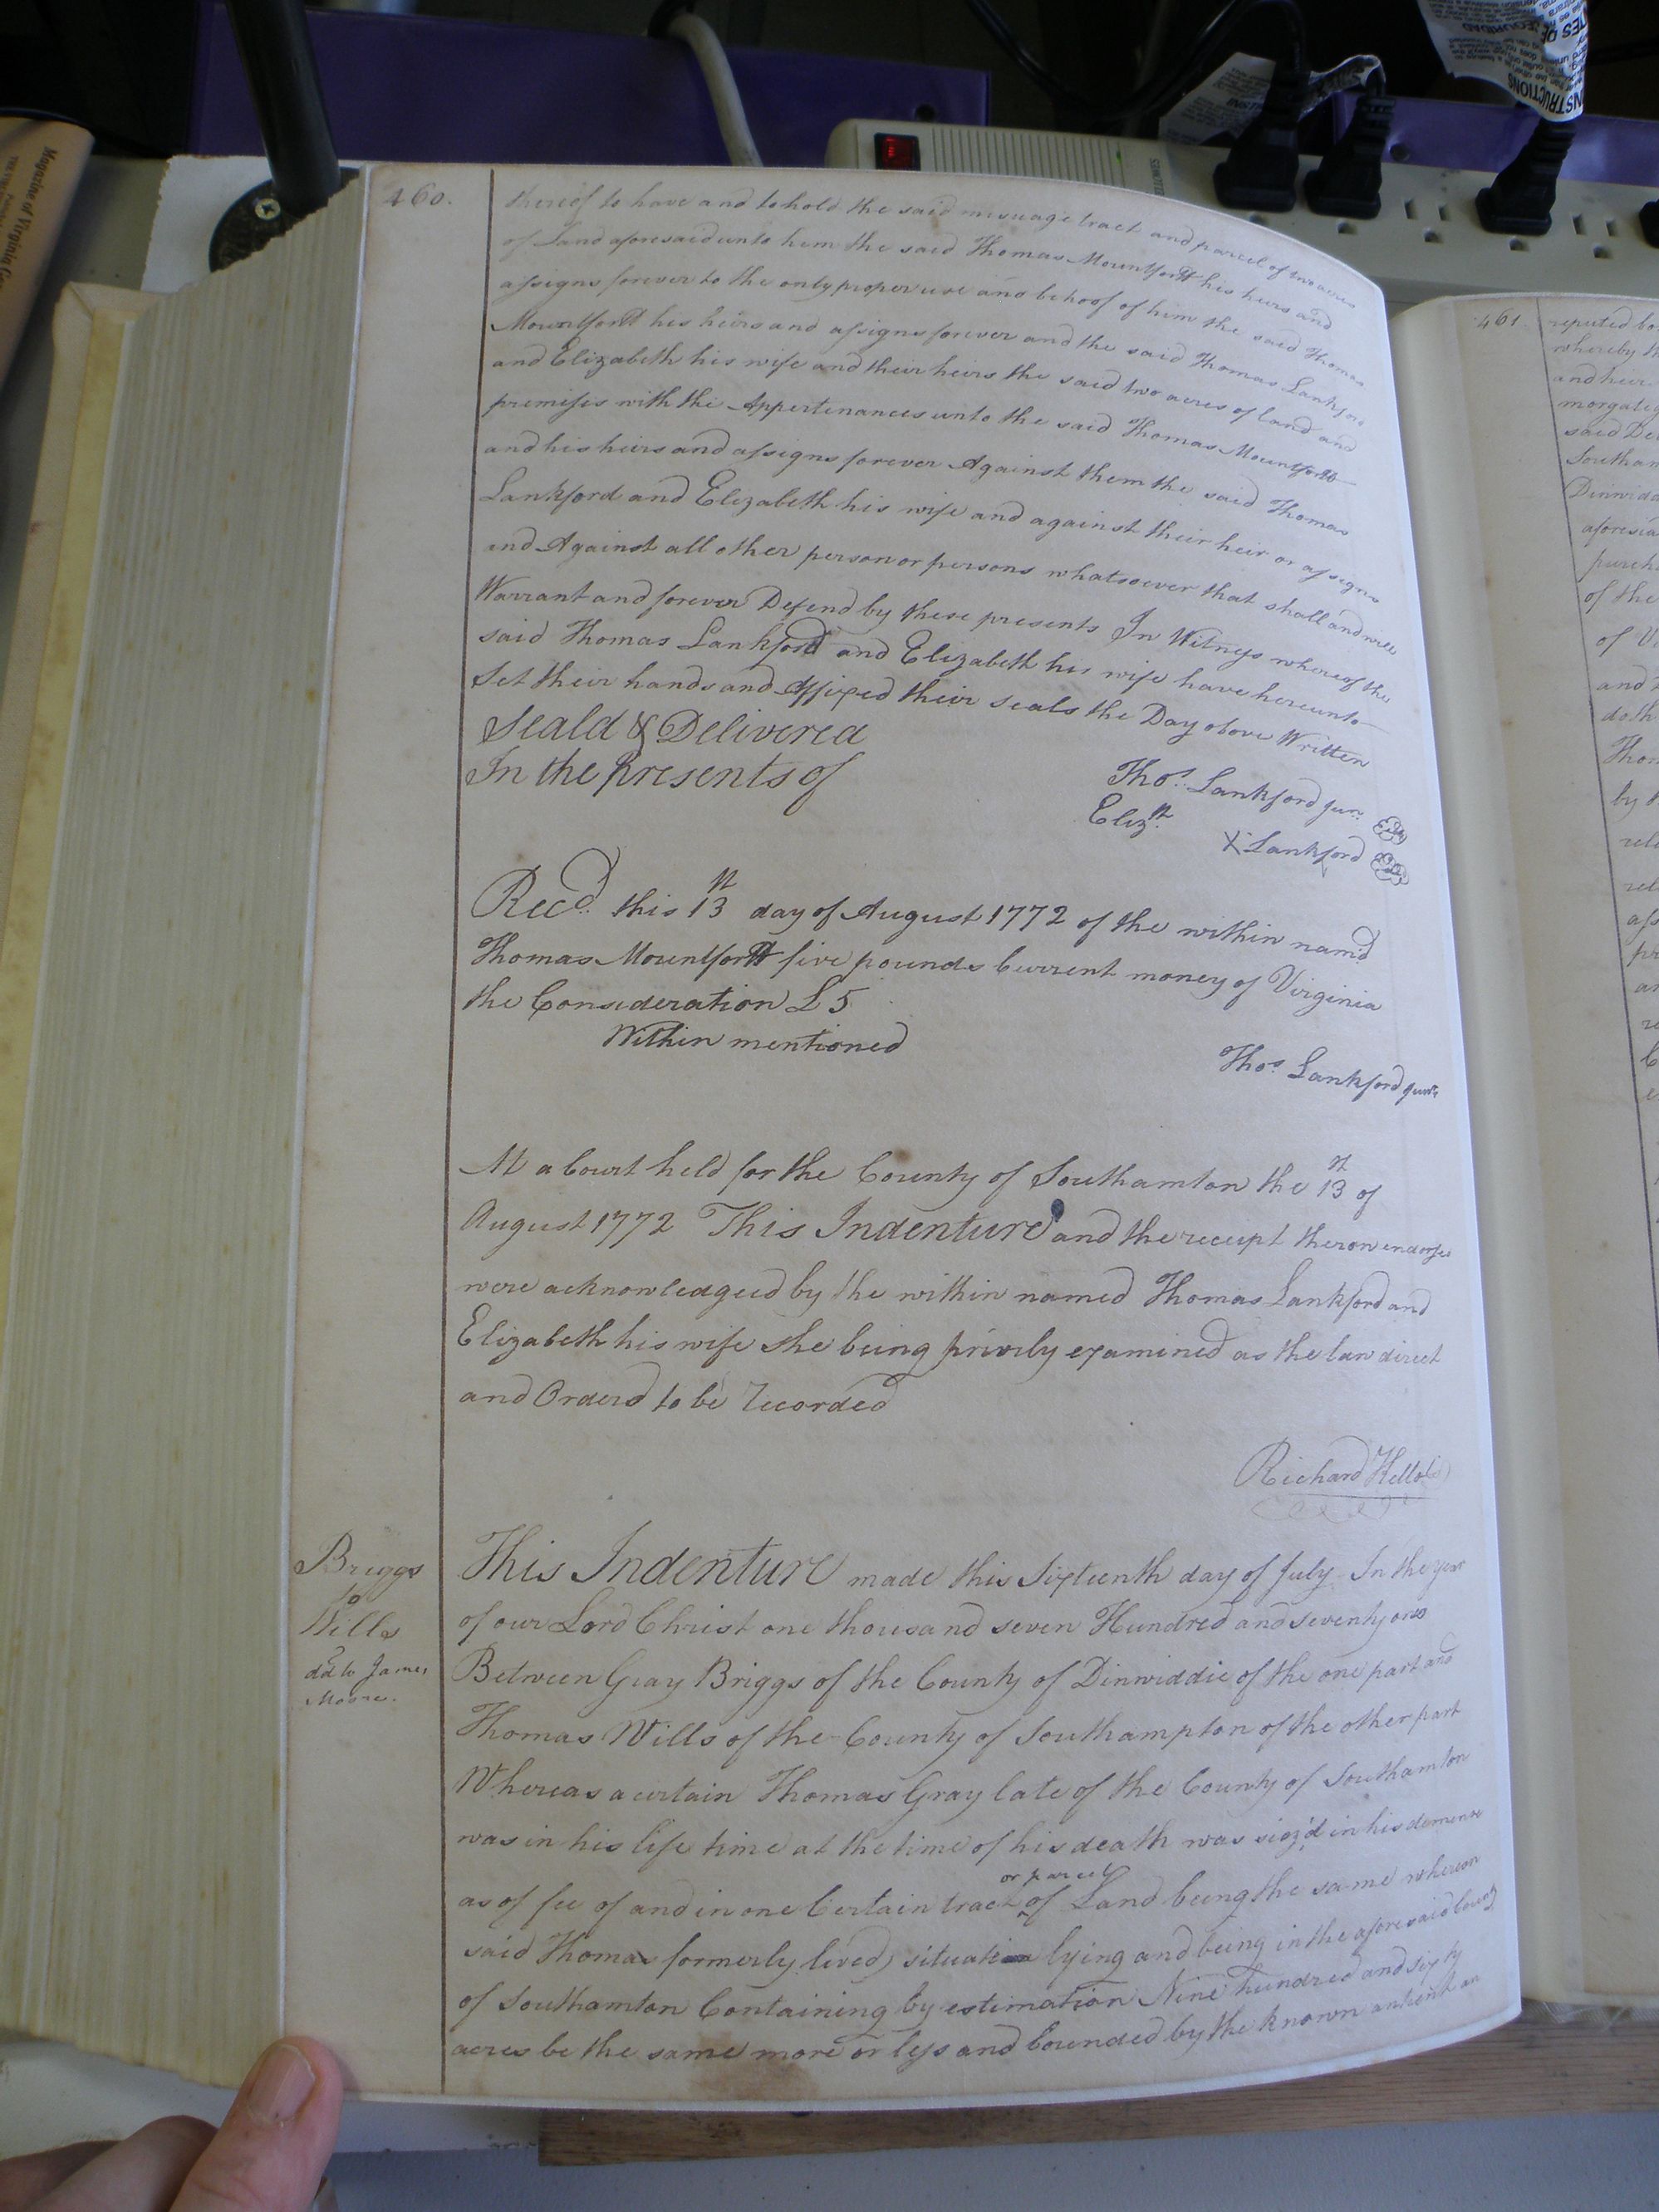 460.
thereof to have and to hold the said mesuage tract and parcel of two acres
of Land aforesaid unto him the said Thomas Mountfortt his heirs and
assigns forever to the only proper use and behoof of him the said Thomas
Mountfortt his heirs and assigns forever and the said Thomas Lankford
and Elizabeth his wife and their heirs the said two acres of land and
premises with the Appertenances unto the said Thomas Mountfortt
and his heirs and assigns forever Against them the said Thomas
Lankford and Elizabeth his wife and against their heir or assigns
and Against all other person or persons whatsoever that shall and will
Warrant and forever Defend by these presents In Witness whereof the
said Thomas Lankford and Elizabeth his wife have hereunto
Set their hands and Affixed their seals the Day above Written
Seald & Delivered
In the presents of
Thos. Lankford junr.
Elizth.
X Lankford
Recd. this 13th day of August 1772 of the within namd
Thomas Mountfortt five pounds Current money of Virginia
the Consideration £5
Within mentioned
Thos. Lankford junr.
At a Court held for the County of Southamton the 13th of
August 1772 This Indenture and the receipt theron endorsed
were acknowledged by the within named Thomas Lankford and
Elizabeth his wife she being privily examined as the law direct
and Orderd to be Recorded
Richard Kello
Briggs
to
Wills
dd to James
Moore.
This Indenture made this Sixteenth day of July In the year
of our Lord Christ one thousand seven Hundred and seventy one
Between Gray Briggs of the County of Dinwiddie of the one part and
Thomas Wills of the County of Southampton of the other part
Whereas a certain Thomas Gray late of the County of Southamton
was in his life time at the time of his death was siez'd in his demense
or parcel
as of fee of and in one Certain tract ^ of Land being the same whereon
said Thomas formerly lived situate lying and being in the aforesaid County
of Southamton Containing by estimation Nine hundred and sixty
acres be the same more or less and bounded by the known antient an
461
reputed bo
whereby th
and heir
morgaleg
said De
Southam
Dinwidd
aforesia
purch
of the
of Vi
and
doth
Thom
by
rel
rel
ass
pr
an